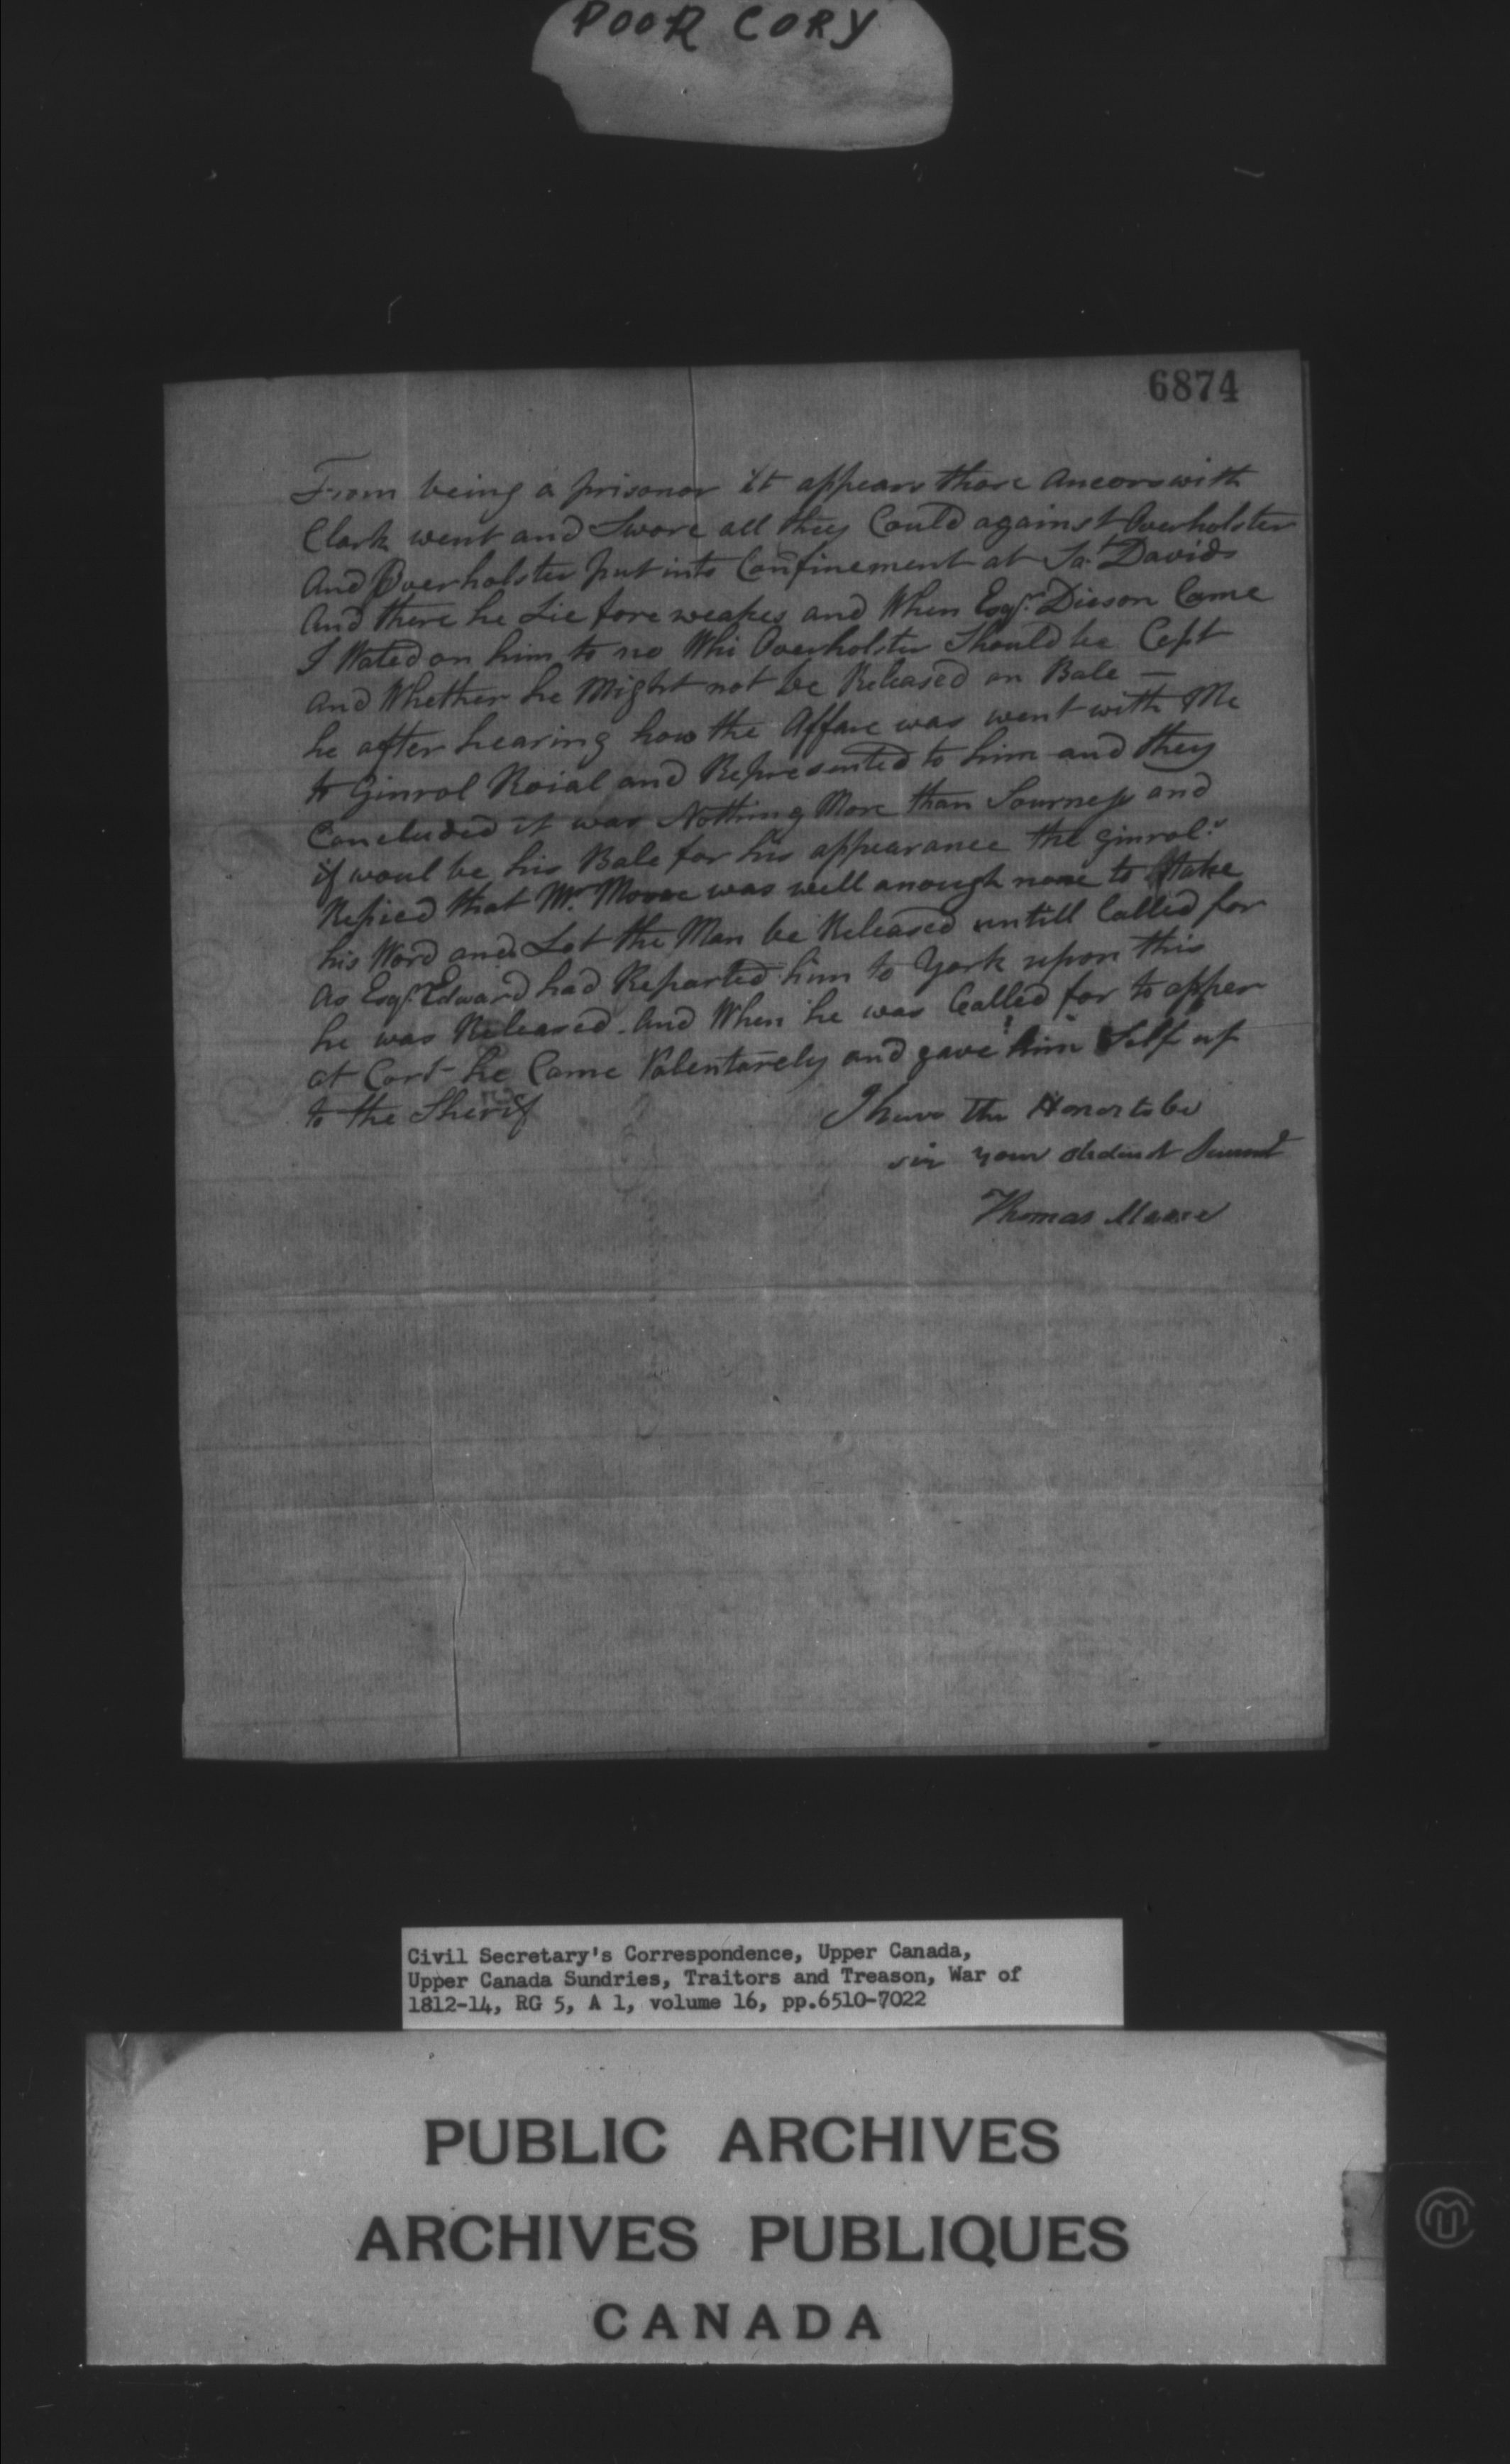 POOR COPY
6874
From being a prisonor it appears thare with
Clark went and Swore all they Could against Overholster
And Overholster put into Confinement at St. Davids
And there he Lie fore weakes and When Esqr. Dicson Came
I Wated on him to no Whi Overholster Should be Cept
and Whether he Might not be Released on Bale —
he after hearing how the Affare was went with Me
to Ginrol Roial and Represented to him and they
Concluded it was Nothing More than and
if woul be his Bale for his appearance the Ginrol
Repied that Mr. Moore was well anough to
his Word and Let the Man be Released untill Called for
As Esqr. Edward had Reported him to York upon this
he was Released. And When he was Called for to apper
at Cort he Came Valentarely and gave him Self up
to the Sherif
I have the Honor to be
sir your obedient Servant
Thomas Moore
Civil Secretary's Correspondence, Upper Canada,
Upper Canada Sundries, Traitors and Treason, War of
1812-14, RG 5, A 1, volume 16, pp.6510-7022
PUBLIC ARCHIVES
ARCHIVES PUBLIQUES
CANADA